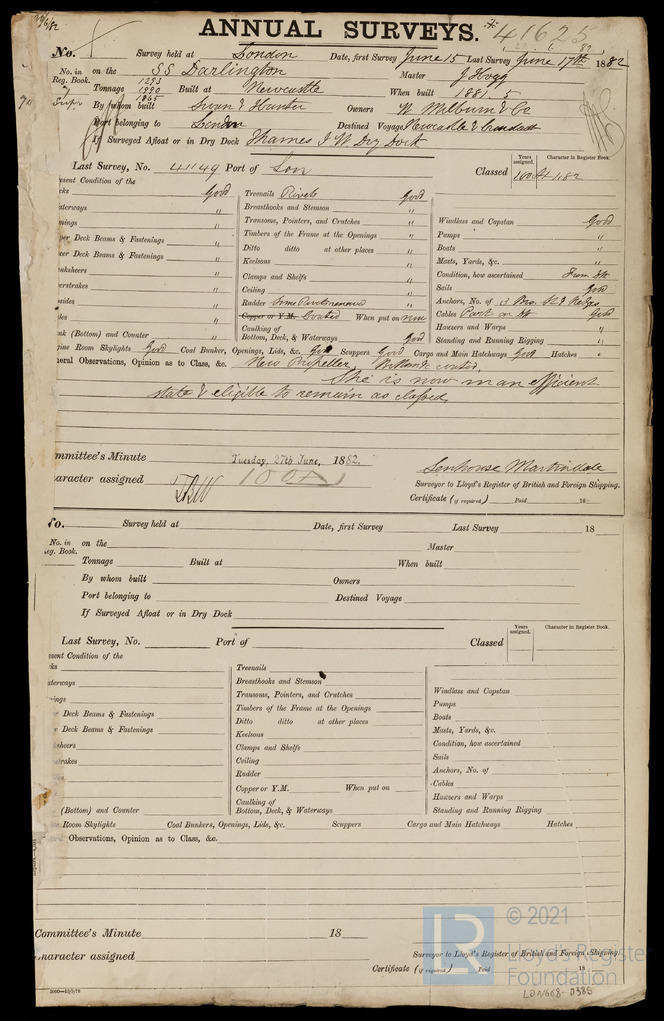 ANNUAL SURVEYS. 41625
No. Survey held at London Date, first Survey June 15 Last Survey June 17th 1882
No. in Reg. Book. on the SS Darlington Master J Hogg
1293
Tonnage 1990 Built at Newcastle When built 1881 5
1865
Supr By whom built Swan & Hunter Owners W. Milburn & Co
Port belonging to London Destined Voyage Newcastle &
If Surveyed Afloat or in Dry Dock Thames I W Dry Dock
Last Survey, No. 41149 Port of Lon Classed 100A1 1.82
Years assigned. Character in Register Book.
esent Condition of the
cks Good
aterways "
mings "
per Deck Beams & Fastenings "
wer Deck Beams & Fastenings "
anksheers "
erstrakes "
psides "
des "
ank (Bottom) and Counter "
Treenails Rivets Good
Breasthooks and Stemson "
Transoms, Pointers, and Crutches "
Timbers of the Frame at the Openings "
Ditto ditto at other places "
Keelsons "
Clamps and Shelfs "
Ceiling "
Rudder Some Rivets renewed "
Copper or Y.M. Coated When put on now
Caulking of Bottom, Deck, & Waterways Good
Windlass and Capstan Good
Pumps "
Boats "
Masts, Yards, &c. "
Condition, how ascertained From Dk
Sails Good
Anchors, No. of 3 Brs. St & Kedges
Cables Part on Dk Good
Hawsers and Warps "
Standing and Running Rigging "
gine Room Skylights Good Coal Bunker, Openings, Lids, &c. Good Scuppers Good Cargo and Main Hatchways Good Hatches "
neral Observations, Opinion as to Class, &c. New Propeller, Bottom coated,
She is now in an efficient
state & eligible to remain as classed.
ommittee's Minute Tuesday, 27th June, 1882.
aracter assigned 100A1
Senhouse Martindale
Surveyor to Lloyd's Register of British and Foreign Shipping.
Certificate (if required) Paid 18
No. Survey held at Date, first Survey Last Survey 18
No. in Reg. Book. on the Master
Tonnage Built at When built
By whom built Owners
Port belonging to Destined Voyage
If Surveyed Afloat or in Dry Dock
Last Survey, No. Port of Classed
Years assigned. Character in Register Book.
esent Condition of the
ks
aterways
ings
r Deck Beams & Fastenings
r Deck Beams & Fastenings
sheers
strakes
(Bottom) and Counter
Treenails
Breasthooks and Stemson
Transoms, Pointers, and Crutches
Timbers of the Frame at the Openings
Ditto ditto at other places
Keelsons
Clamps and Shelfs
Ceiling
Rudder
Copper or Y.M. When put on
Caulking of Bottom, Deck, & Waterways
Windlass and Capstan
Pumps
Boats
Masts, Yards, &c.
Condition, how ascertained
Sails
Anchors, No. of
Cables
Hawsers and Warps
Standing and Running Rigging
e Room Skylights Coal Bunkers, Openings, Lids, &c. Scuppers Cargo and Main Hatchways Hatches
Observations, Opinion as to Class, &c.
Committee's Minute 18
haracter assigned
Surveyor to Lloyd's Register of British and Foreign Shipping.
Certificate (if required) Paid 18
2000—13/3/78
LR © 2021
Lloyd's Register
Foundation
LON668-0385